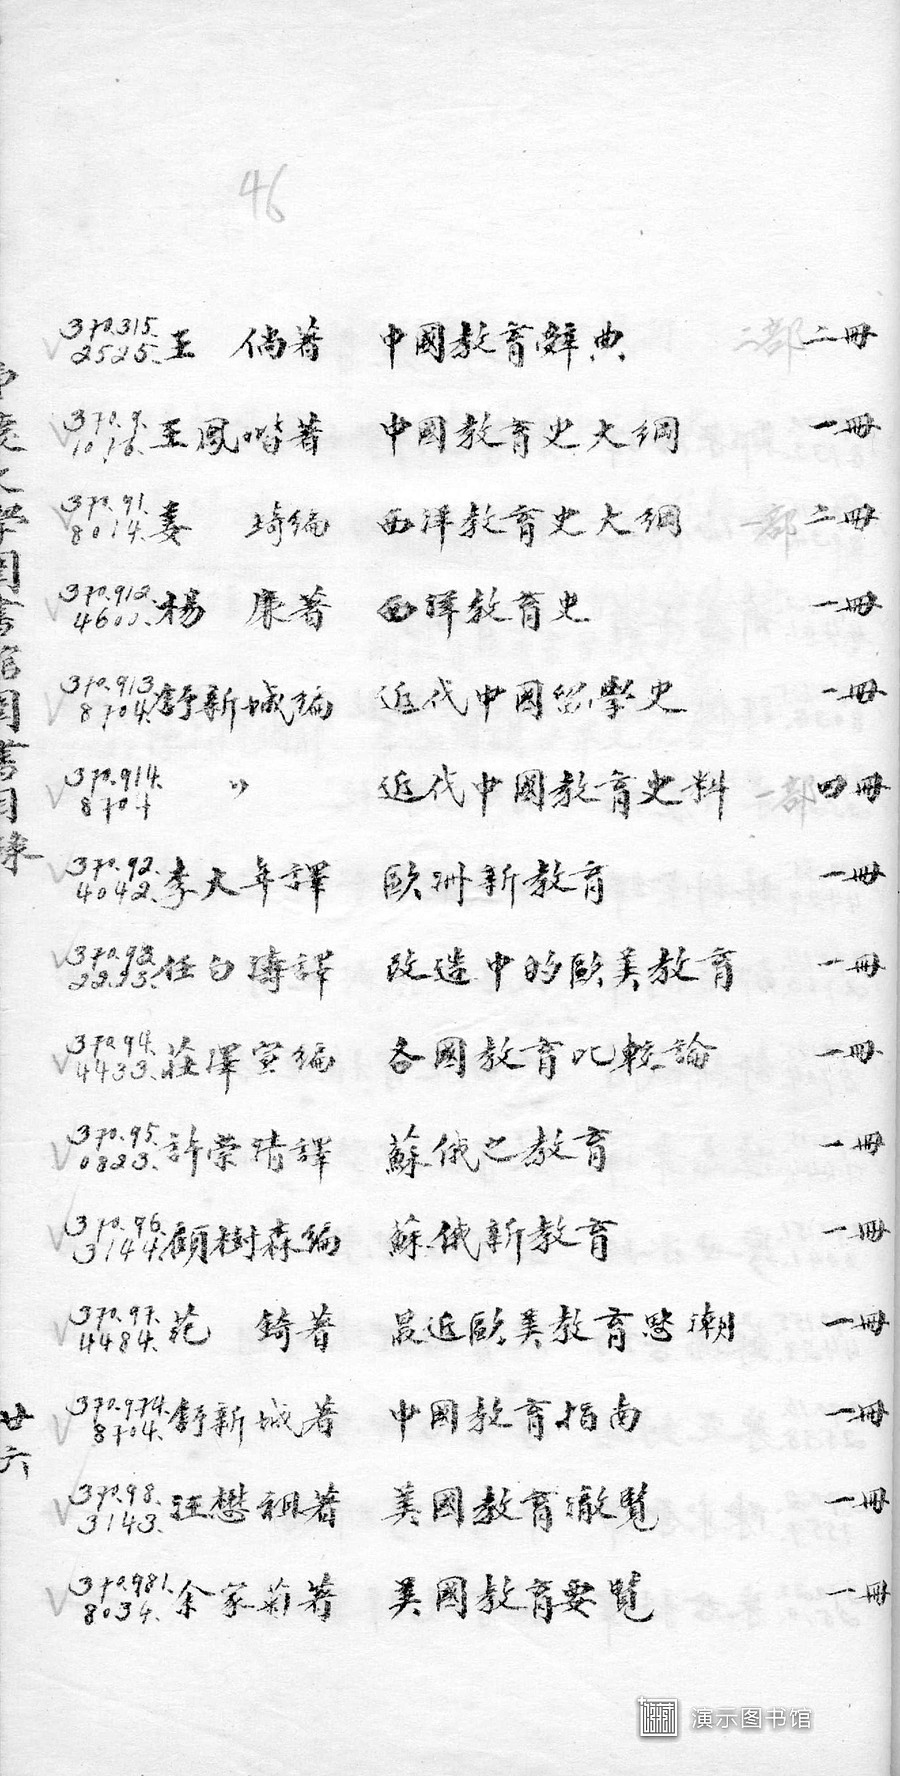 46
370.315. 2525. 王　倘著　中國教育辭典　二部 二冊
370.9. 1016. 王鳳喈著　中國教育史大綱　一冊
370.91. 8014. 姜　琦編　西洋教育史大綱　一部 二冊
370.912. 楊　廉著　西洋教育史　一冊
370.913. 8704. 舒新城編　近代中國留學史　一冊
370.914. 8704　〃　近代中國教育史料　一部 四冊
370.92. 4042. 李大年譯　歐洲新教育　一冊
370.93. 2233. 任白濤譯　改造中的歐美教育　一冊
370.94. 4433. 莊澤宣編　各國教育比較論　一冊
370.95. 0823. 許崇清譯　蘇俄之教育　一冊
370.96. 3144. 顧樹森編　蘇俄新教育　一冊
370.97. 4484. 范　錡著　最近歐美教育思潮　一冊
370.974. 8704. 舒新城著　中國教育指南　一冊
370.98. 3143. 汪懋祖著　美國教育徹覽　一冊
370.981. 8034. 余家菊著　美國教育要覽　一冊
大學圖書館圖書目錄
廿六
演示图书馆